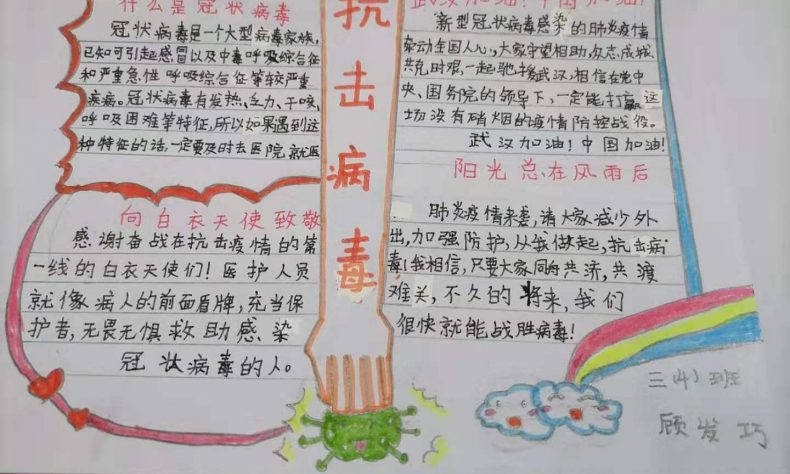 什么是冠状病毒
冠状病毒是一个大型病毒家族,
已知可引起感冒以及中毒呼吸综合征
和严重急性呼吸综合征等较严重
疾病。冠状病毒有发热、乏力、干咳,
呼吸困难等特征,所以如果遇到这
种特征的话,一定要及时去医院就医
向白衣天使致敬
感谢奋战在抗击疫情的第
一线的白衣天使们!医护人员
就像病人的前面盾牌,充当保
护者,无畏无惧救助感染
冠状病毒的人。
抗
击
病
毒
武汉加油!中国加油!
新型冠状病毒感染的肺炎疫情
牵动全国人心,大家守望相助,众志成城
共克时艰,一起驰援武汉,相信在党中
央、国务院的领导下,一定能打赢这
场没有硝烟的疫情防控战役。
武汉加油!中国加油!
阳光总在风雨后
肺炎疫情来袭,请大家减少外
出,加强防护,从我做起,抗击病
毒!我相信,只要大家同舟共济,共渡
难关,不久的将来,我们
很快就能战胜病毒!
三(4)班
顾发巧